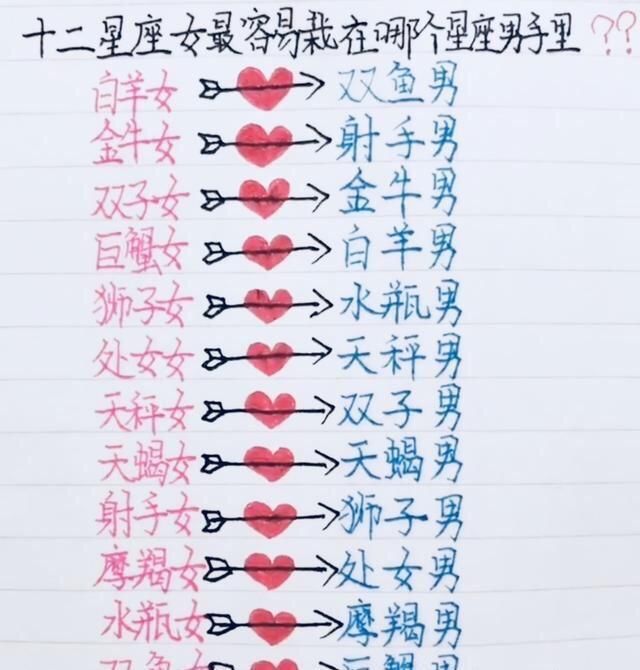 十二星座女最容易栽在哪个星座男手里??
白羊女 双鱼男
金牛女 射手男
双子女 金牛男
巨蟹女 白羊男
狮子女 水瓶男
处女女 天秤男
天秤女 双子男
天蝎女 天蝎男
射手女 狮子男
摩羯女 处女男
水瓶女 摩羯男
双鱼女 巨蟹男